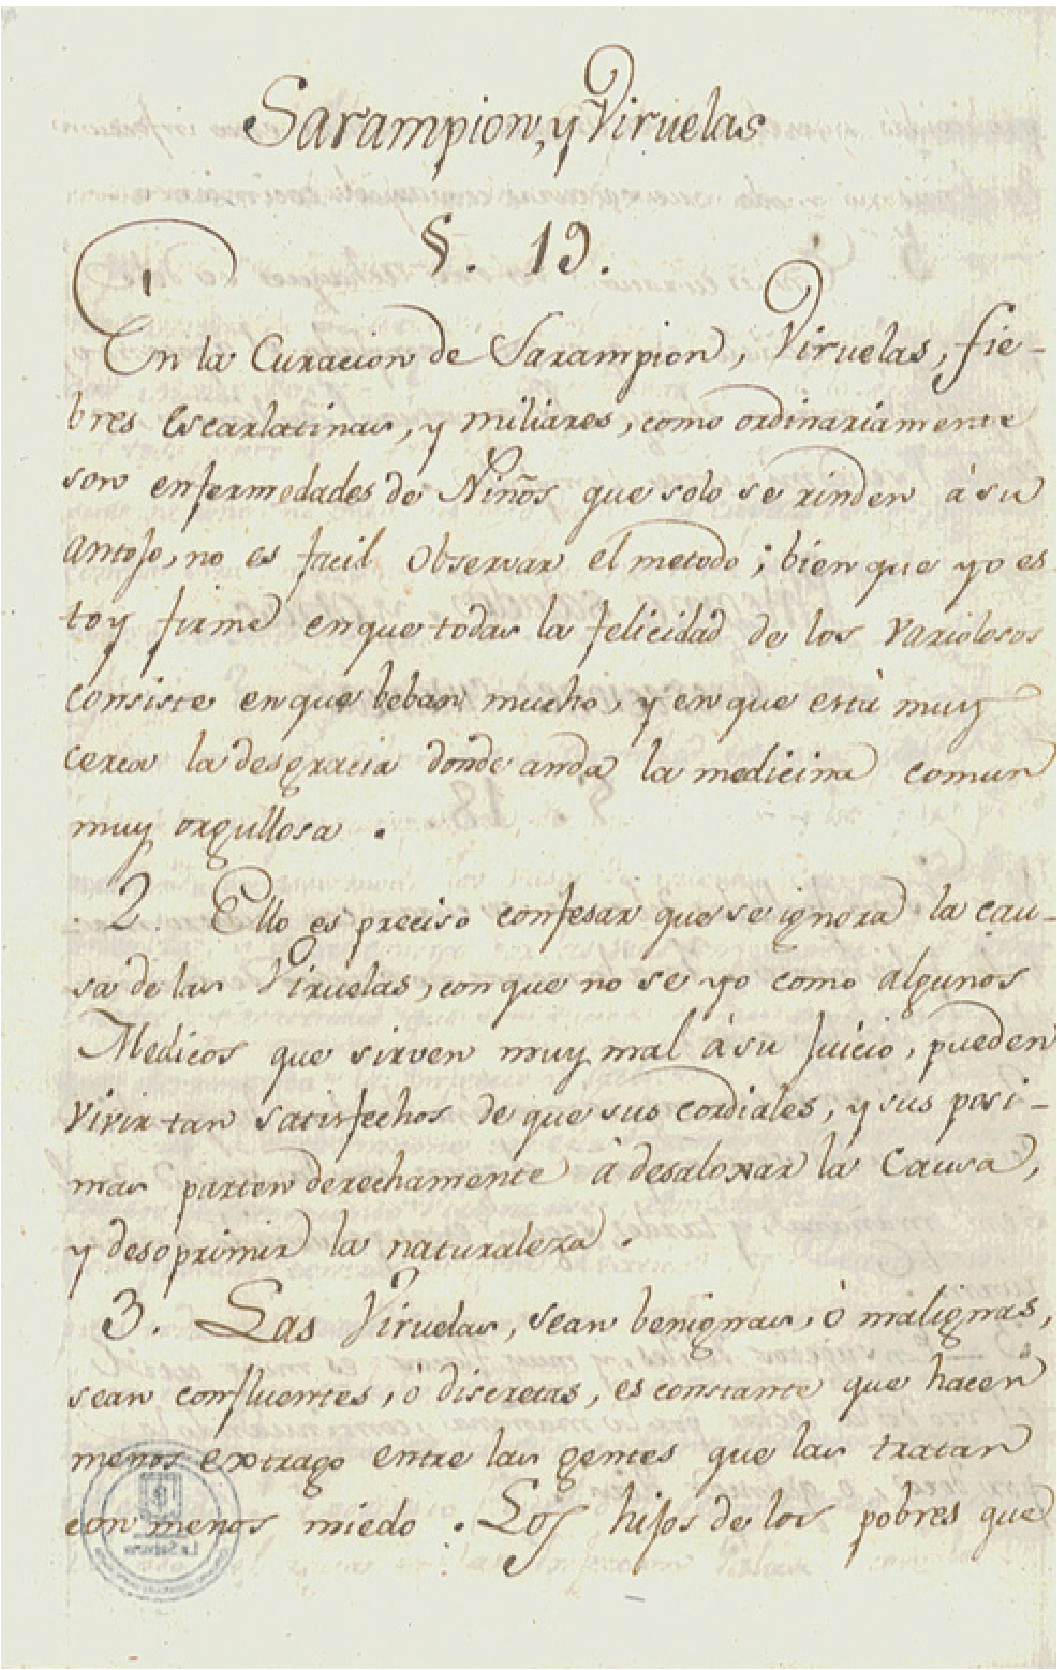 Sarampion, y Viruelas
§. 19.
En la Curacion de Sarampion, Viruelas, fie-
bres escarlatinas, y miliares, como ordinariamente
son enfermedades de Niños que solo se rinden à su
antojo, no es facil observar el metodo; bien que yo es
toy firme en que todas la felicidad de los variolosos
consiste en que beban mucho, y en que està muy
cerca la desgracia donde anda la medicina comun
muy orgullosa.
2. Ello es preciso confesar que se ignora la cau-
sa de las Viruelas, con que no se yo como algunos
Medicos que sirven muy mal à su Juicio, pueden
vivir tan satisfechos de que sus cordiales, y sus posi-
mas parten derechamente à desaloxar la Causa,
y desoprimir la naturaleza.
3. Las Viruelas, sean benignas, ò malignas,
sean confluentes, ò discretas, es constante que hacen
menos extrago entre las gentes que las tratan
con menos miedo. Los hijos de los pobres que